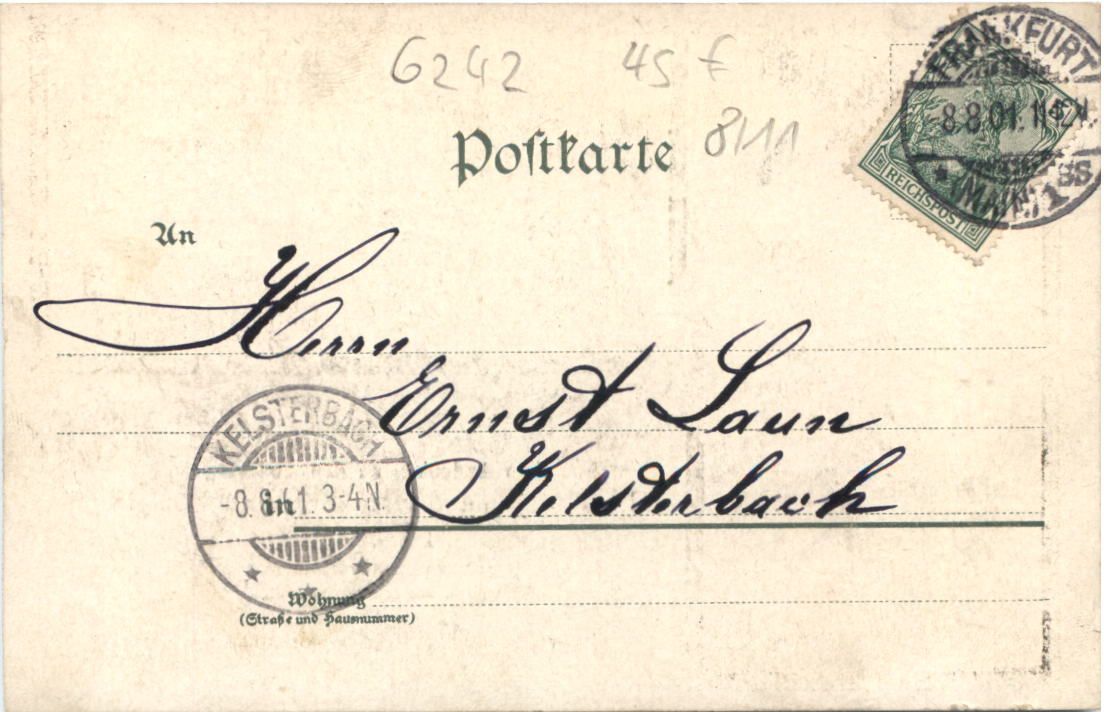 6242 45 f
8/11
FRANKFURT
-8.8.01. 1
(MAIN) 1
REICHSPOST
Poſtkarte
An
Herrn
Ernst Laun
Kelsterbach
KELSTERBACH
-8.8. 1. 3-4N.
in
Wohnung
(Straße und Hausnummer)